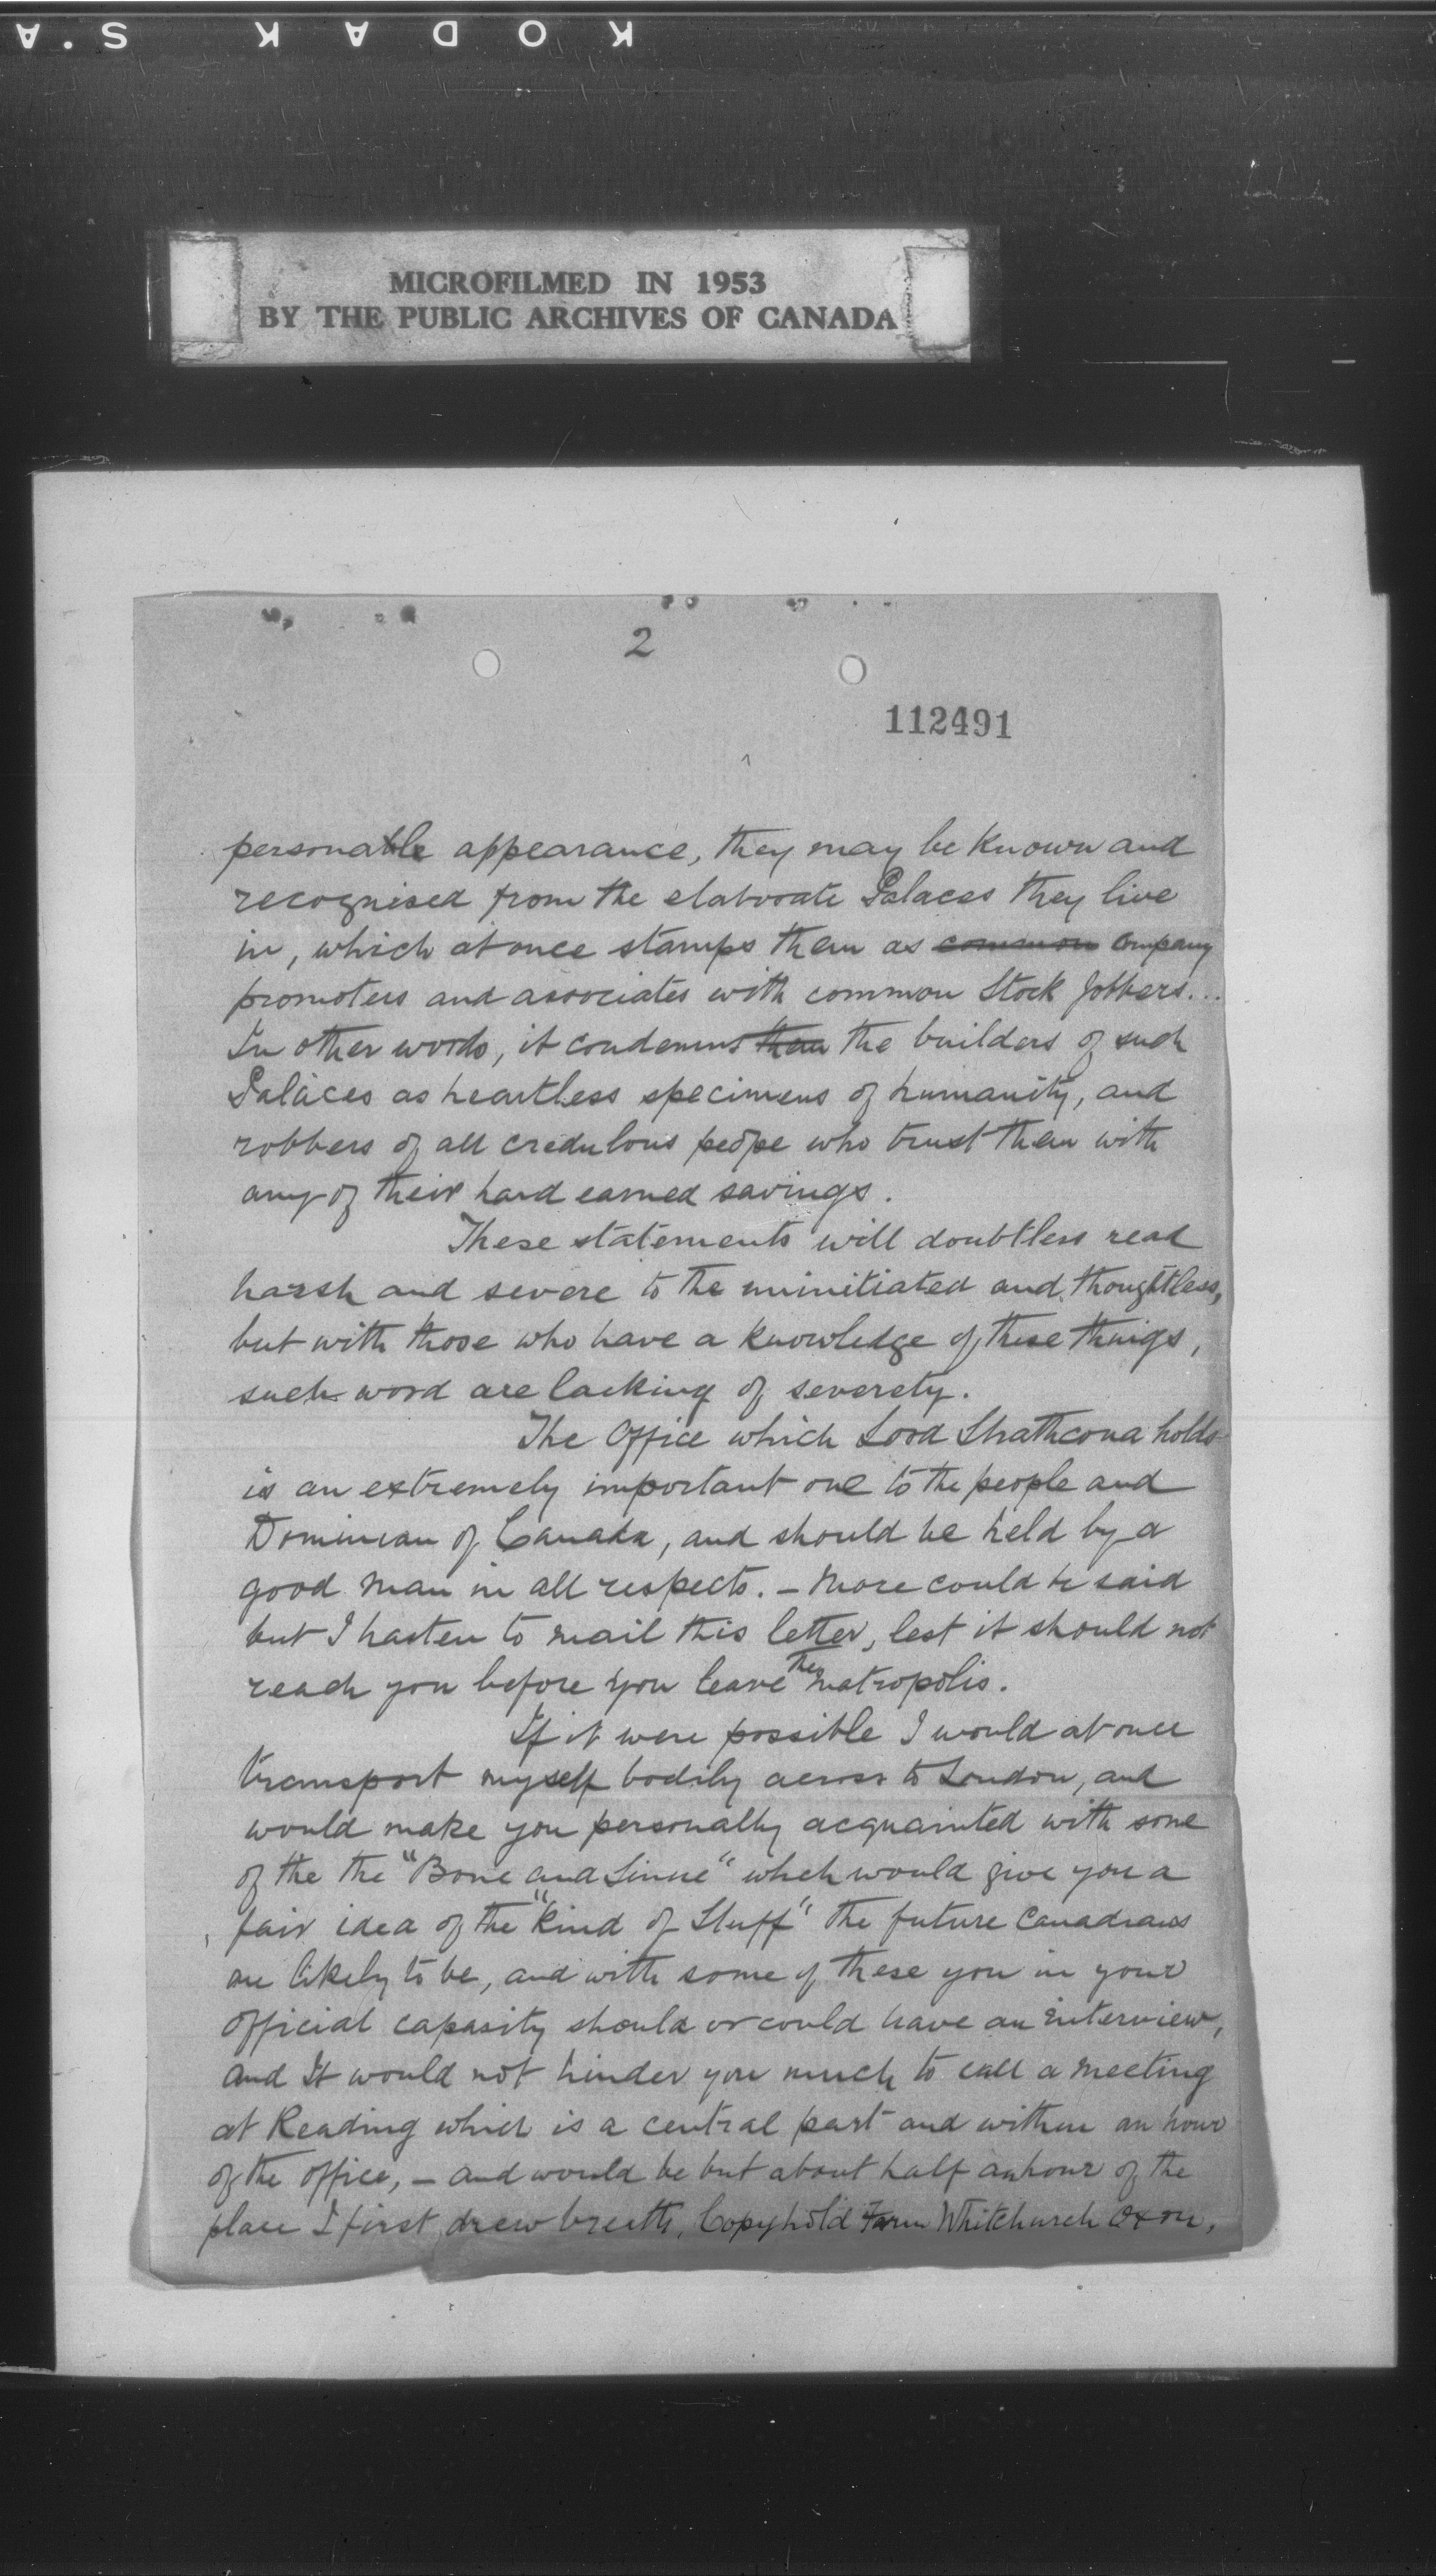 KODAK S.A
MICROFILMED IN 1953
BY THE PUBLIC ARCHIVES OF CANADA
2
112491
personable appearance, they may be known and
recognised from the elaborate Palaces they live
in, which at once stamps them as common Company
promoters and associates with common Stock Jobbers...
In other words, it condemns them the builders of such
Palaces as heartless specimens of humanity, and
robbers of all credulous peope who trust them with
any of their hard earned savings.
These statements will doubtless read
harsh and severe to the uninitiated and thoughtless,
but with those who have a knowledge of these things,
such word are lacking of severety.
The Office which Lord Strathcona holds
is an extremely important one to the people and
Dominion of Canada, and should be held by a
good man in all respects. - More could be said
but I hasten to mail this letter, lest it should not
reach you before you leave the matropolis.
If it were possible I would at once
transport myself bodily across to London, and
would make you personally acquainted with some
of the the "Bone and Sinue" which would give you a
fair idea of the "Kind of Stuff" the future Canadians
are likely to be, and with some of these you in your
official capasity should or could have an interview,
and It would not hinder you much to call a meeting
at Reading which is a central part and within an hour
of the office, - and would be but about half an hour of the
place I first drew breath, Copyhold Farm Whitchurch Oxon,